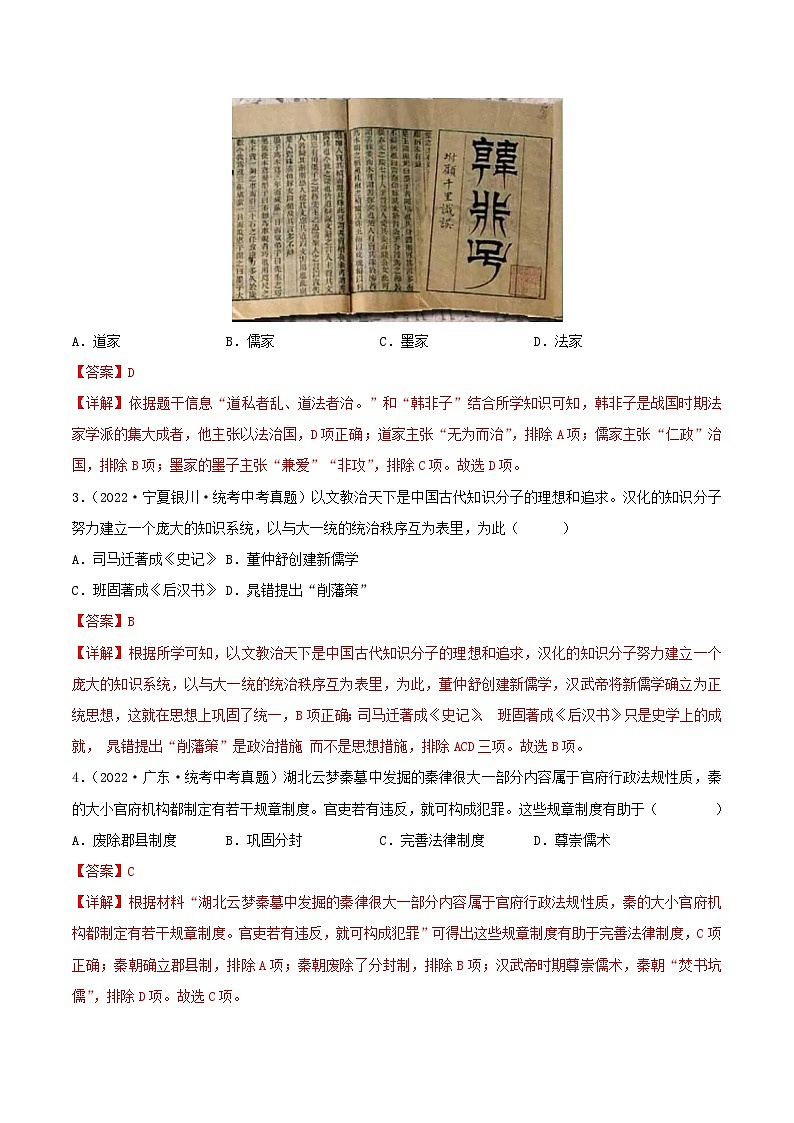 韩非子
A．道家 B．儒家 C．墨家 D．法家
【答案】D
【详解】依据题干信息“道私者乱、道法者治。”和“韩非子”结合所学知识可知，韩非子是战国时期法
家学派的集大成者，他主张以法治国，D项正确；道家主张“无为而治”，排除A项；儒家主张“仁政”治
国，排除B项；墨家的墨子主张“兼爱”“非攻”，排除C项。故选D项。
3.（2022·宁夏银川·统考中考真题）以文教治天下是中国古代知识分子的理想和追求。汉化的知识分子
努力建立一个庞大的知识系统，以与大一统的统治秩序互为表里，为此（ ）
A．司马迁著成《史记》 B．董仲舒创建新儒学
C．班固著成《后汉书》 D．晁错提出“削藩策”
【答案】B
【详解】根据所学可知，以文教治天下是中国古代知识分子的理想和追求，汉化的知识分子努力建立一个
庞大的知识系统，以与大一统的统治秩序互为表里，为此，董仲舒创建新儒学，汉武帝将新儒学确立为正
统思想，这就在思想上巩固了统一，B项正确；司马迁著成《史记》、 班固著成《后汉书》只是史学上的成
就， 晁错提出“削藩策”是政治措施 而不是思想措施，排除ACD三项。故选B项。
4.（2022·广东·统考中考真题）湖北云梦秦墓中发掘的秦律很大一部分内容属于官府行政法规性质，秦
的大小官府机构都制定有若干规章制度。官吏若有违反，就可构成犯罪。这些规章制度有助于（ ）
A．废除郡县制度 B．巩固分封 C．完善法律制度 D．尊崇儒术
【答案】C
【详解】根据材料“湖北云梦秦墓中发掘的秦律很大一部分内容属于官府行政法规性质，秦的大小官府机
构都制定有若干规章制度。官吏若有违反，就可构成犯罪”可得出这些规章制度有助于完善法律制度，C项
正确；秦朝确立郡县制，排除A项；秦朝废除了分封制，排除B项；汉武帝时期尊崇儒术，秦朝“焚书坑
儒”，排除D项。故选C项。